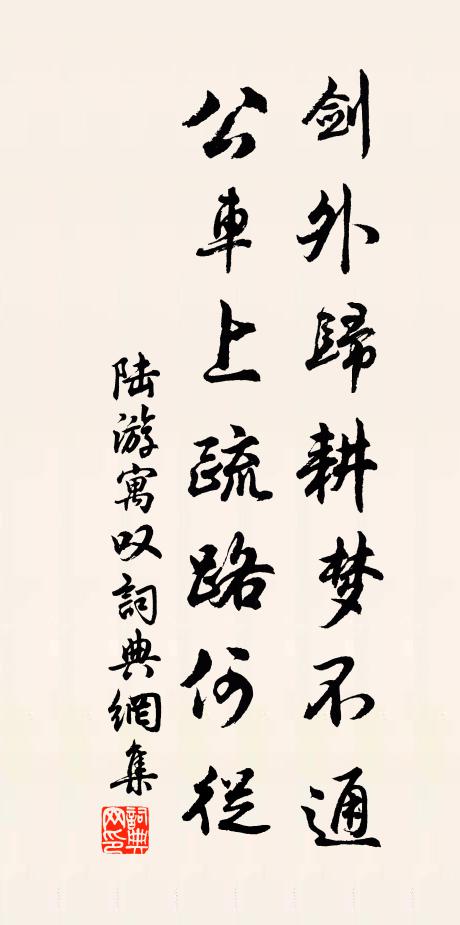 剑外歸耕梦不通
公車上疏路何從
陆游寓叹詞典網集
詞典网印